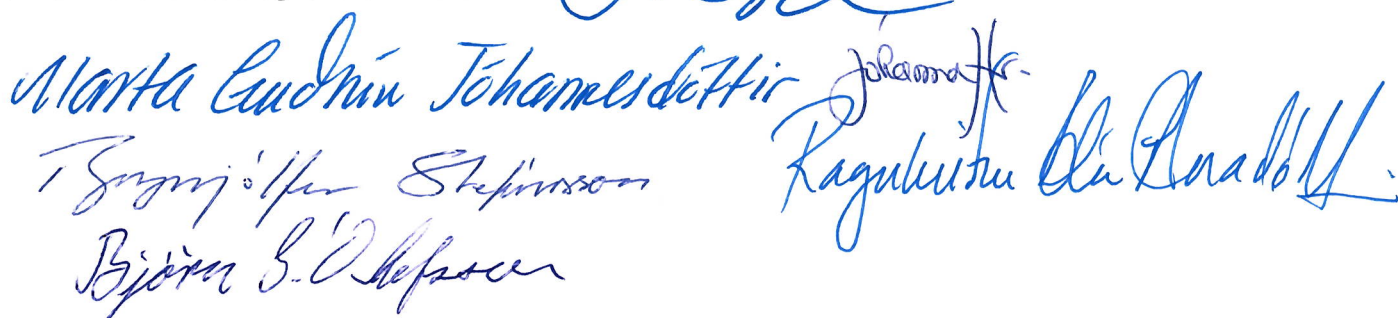 Marta Guðrún Jóhannesdóttir
Jóhanna
Brynjólfur Stefánsson
Ragnheiður
Björn S. Ólafsson